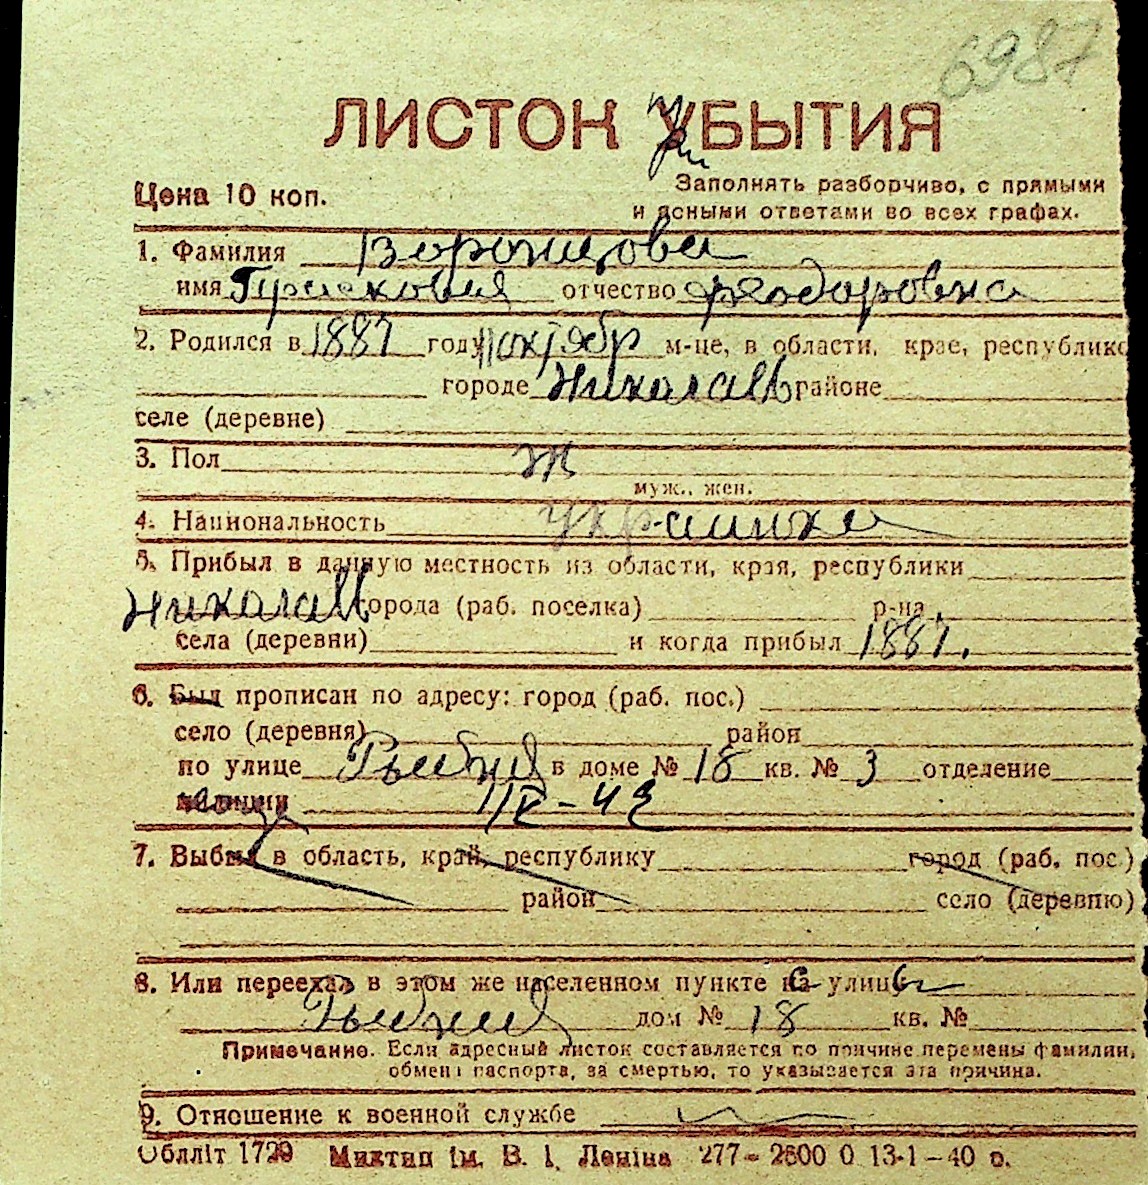 6987
ЛИСТОК УБЫТИЯ
При
Цена 10 коп.
Заполнять разборчиво, с прямыми
и ясными ответами во всех графах.
1. Фамилия Воронцова
имя Прасковия отчество Феодоровна
2. Родился в 1887 году 11 октябр м-це, в области, крае, республике
городе Николаев районе
селе (деревне)
3. Пол ж
муж., жен.
4. Национальность украинка
5. Прибыл в данную местность из области, края, республики
Николаев города (раб. поселка) р-на
села (деревни) и когда прибыл 1887.
6. Был прописан по адресу: город (раб. пос.)
село (деревня) район
по улице Рыбная в доме № 18 кв. № 3 отделение
милиции
7. Выбыл в область, край, республику город (раб. пос.)
район село (деревню)
8. Или переехал в этом же населенном пункте с улицы
Рыбная дом № 18 кв. №
Примечание. Если адресный листок составляется по причине перемены фамилии,
обмена паспорта, за смертью, то указывается эта причина.
9. Отношение к военной службе
Обллiт 1729 Миктип iм. В. I. Ленiна 277-2600 0 13-1-40 р.